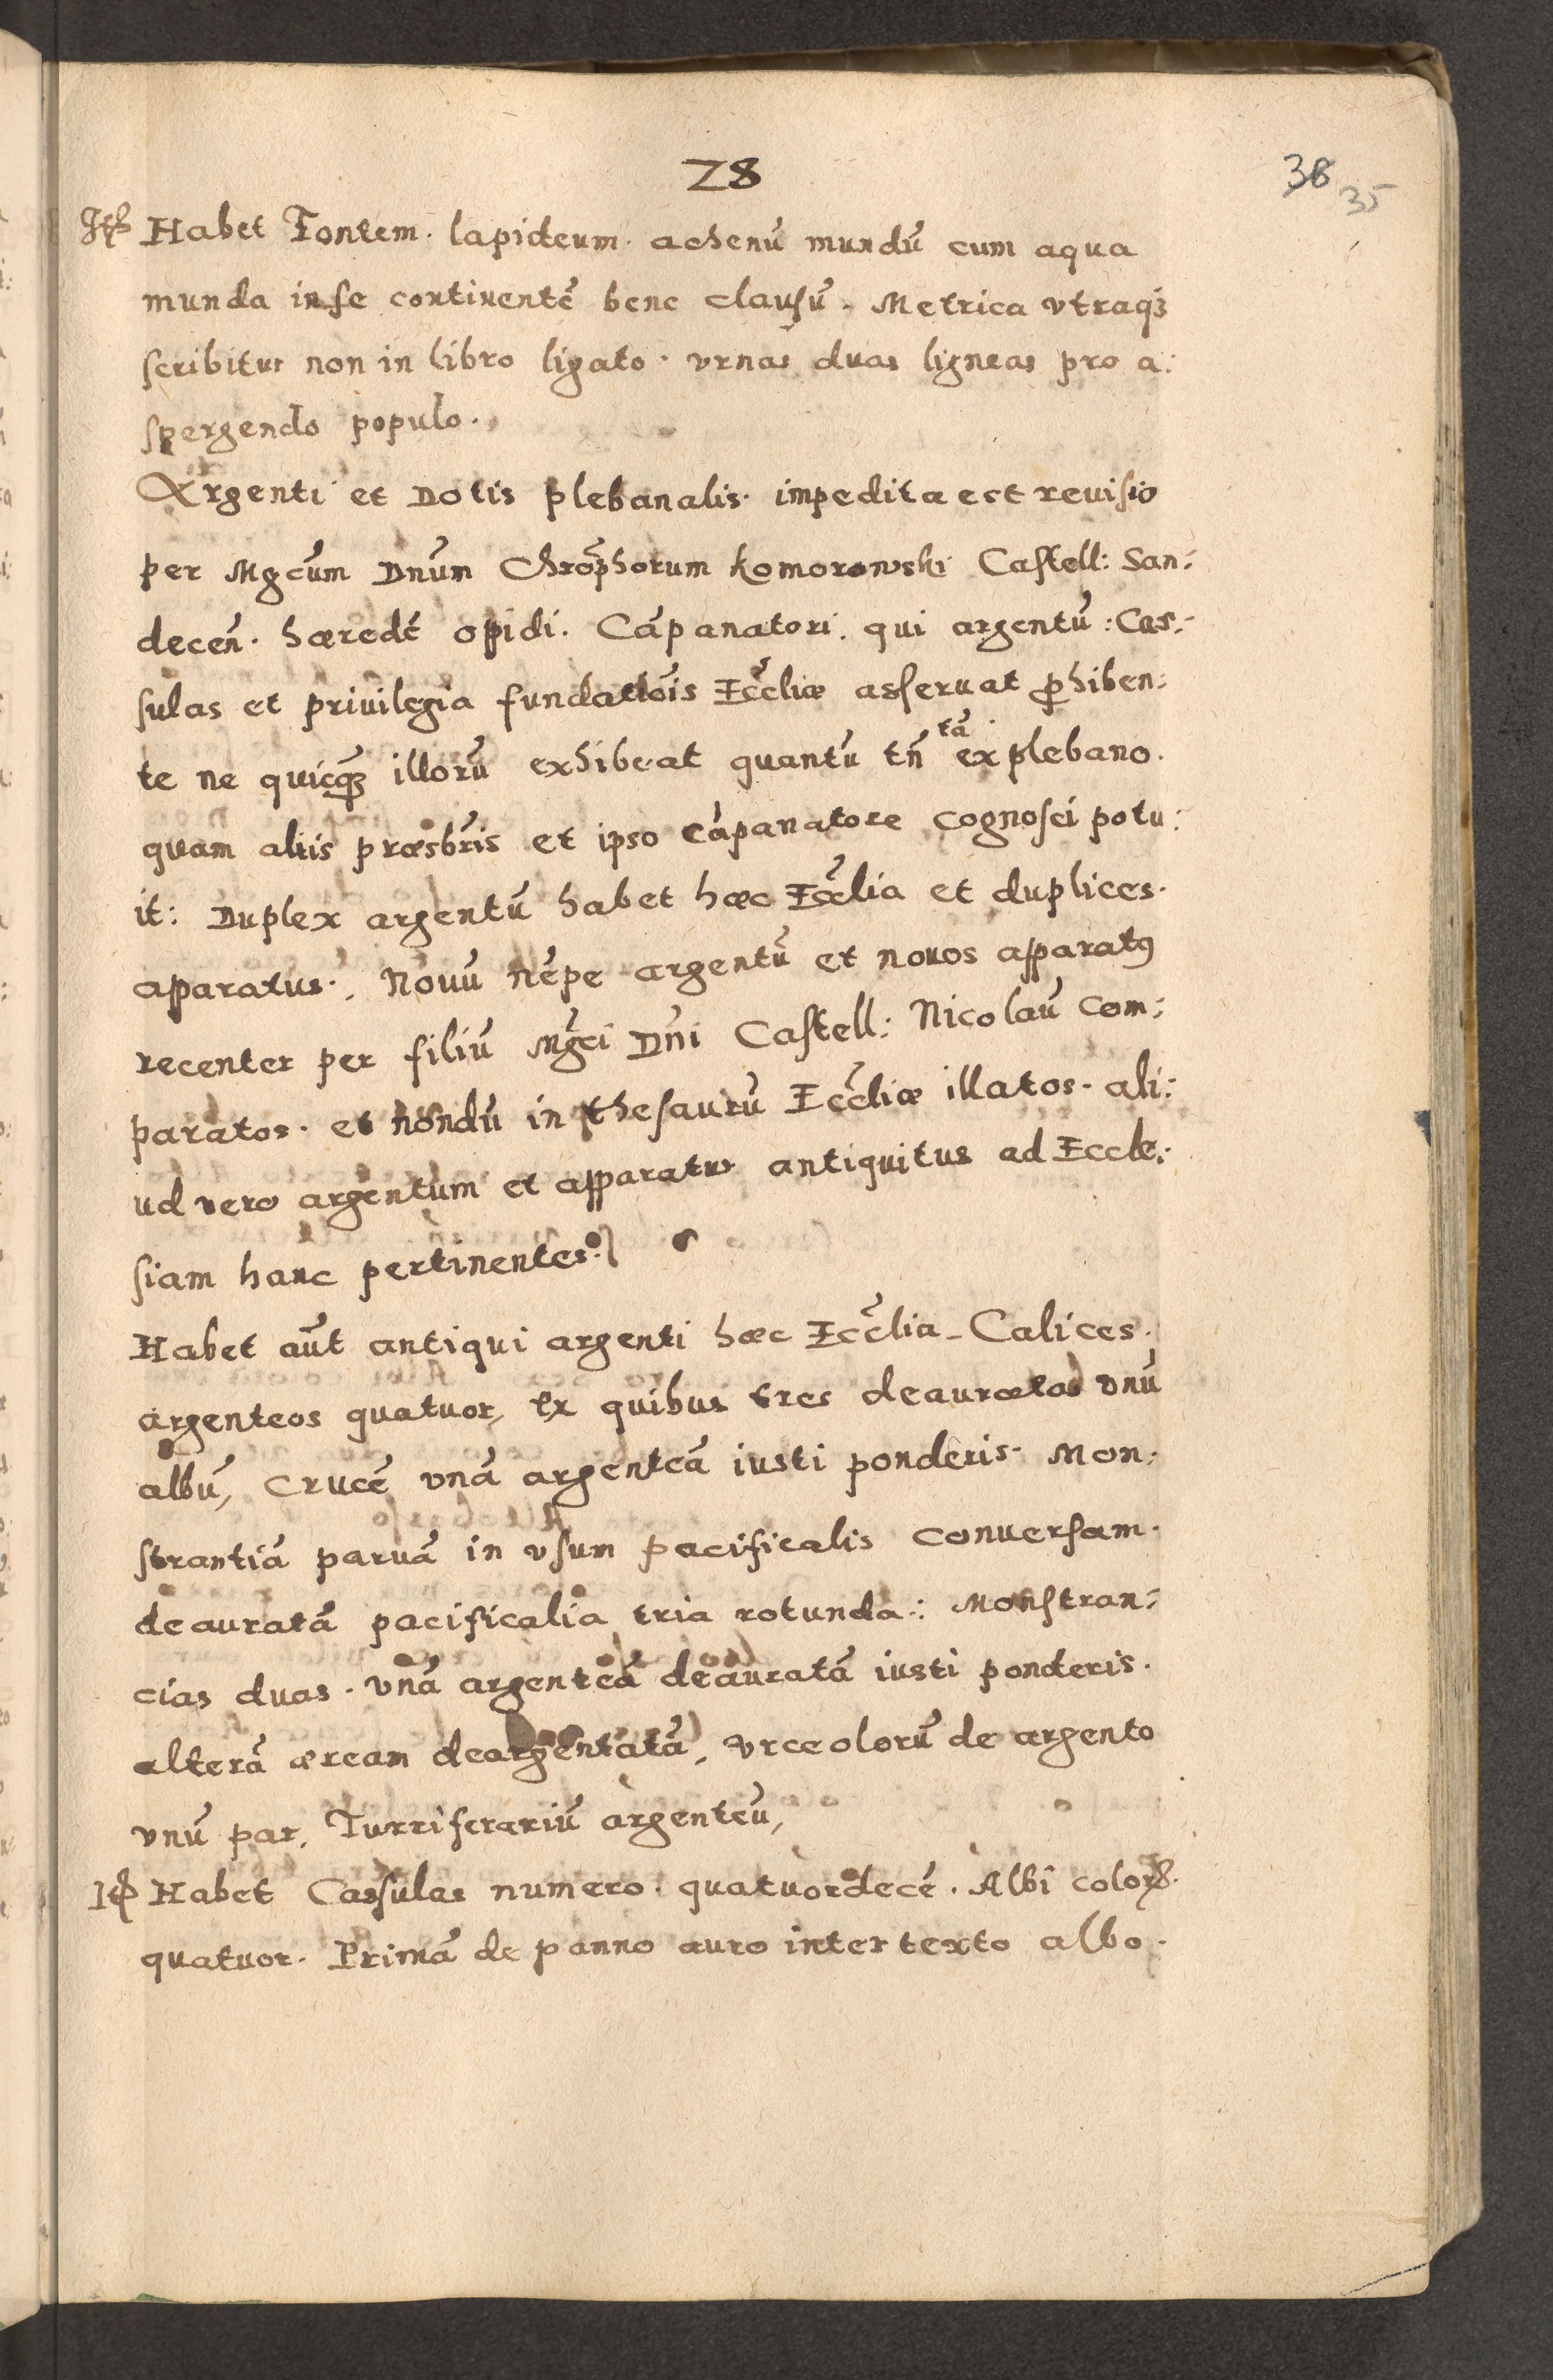 28
38 35
Itē Habet Fontem. lapideum. achenū mundū cum aqua
munda in se continentē bene clausū. Metrica vtraqȝ
scribitur non in libro ligato. vrnas duas ligneas pro a:
spergendo populo.
Argenti et Dotis plebanalis. impedita est reuisio
per Mgcūm Dnūm Chrōphorum Komorowski Castell: San:
decen̄. hæredē opidi. Cāpanatori. qui argentū: Cas:
sulas et priuilegia fundatiōis Eccl̄iæ asseruat ꝓhiben:
te ne quicqȝ illorū exhibeat quantū tn̄ tā ex plebano.
quam aliis præsbr̄is et ipso cāpanatore cognosci potu:
it: Duplex argentū habet hæc Eccl̄ia et duplices.
apparatus. Nouū nēpe argentū et nouos apparatꝰ
recenter per filiū Mgc̄i Dn̄i Castell: Nicolaū com:
paratos. et nōndū in thesaurū Eccl̄iæ illatos. ali:
ud vero argentum et apparatus antiquitus ad Eccle:
siam hanc pertinentes.
Habet aūt antiqui argenti hæc Eccl̄ia Calices.
argenteos quatuor, ex quibus tres deauratos vnū
albū, Crucē vnā argenteā iusti ponderis. Mon:
strantiā paruā in vsum pacificalis conuersam.
deauratā pacificalia tria rotunda: Monstran:
cias duas. vnā argenteā deauratā iusti ponderis.
alterā æream deargentatā, Vrceolorū de argento
vnū par, Turriferariū argenteū,
Itē Habet Cassulas numero. quatuordecē. Albi coloris.
quatuor. Primā de panno auro intertexto albo.